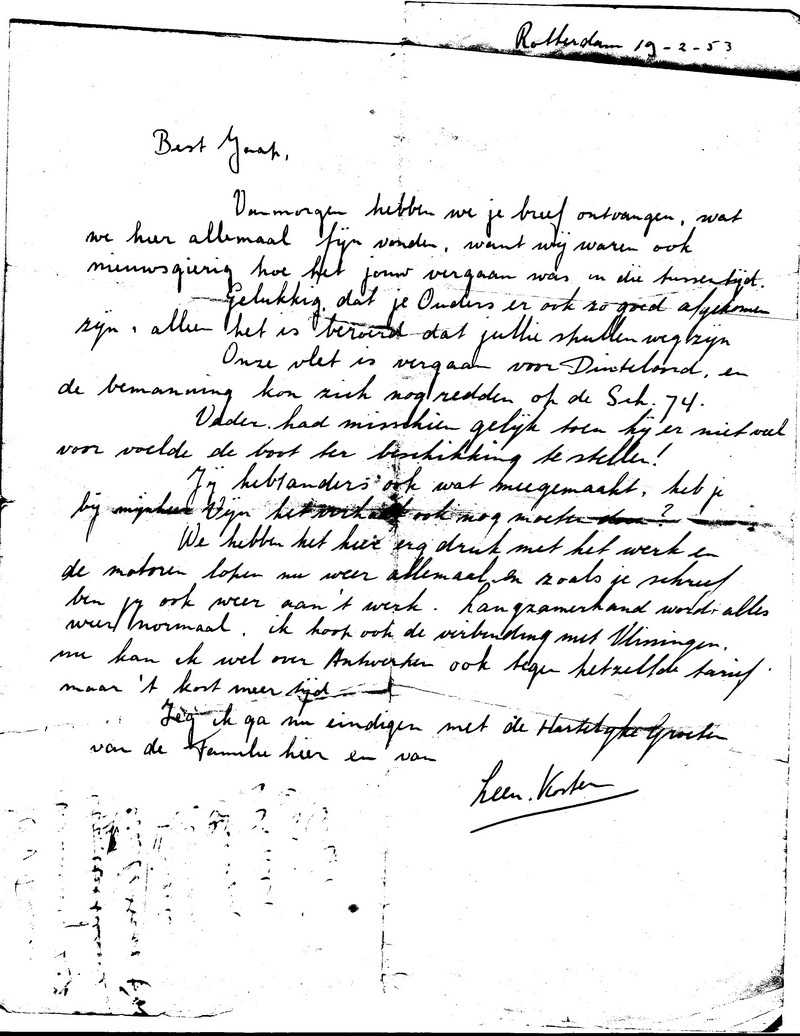 Rotterdam 19-2-53
Best Jaap,
Vanmorgen hebben we je brief ontvangen, wat
we hier allemaal fijn vonden, want wij waren ook
nieuwsgierig hoe het jouw vergaan was in die tussentijd.
Gelukkig, dat je Ouders er ook zo goed afgekomen
zijn, alleen het is beroerd dat jullie spullen weg zijn
Onze vlet is vergaan voor Dinteloord, en
de bemanning kon zich nog redden op de Sch. 74.
Vader had misschien gelijk toen hij er niet veel
voor voelde de boot ter beschikking te stellen!
Jij hebt anders ook wat meegemaakt, heb je
bij mijnheer Vijn het verhaal ook nog moeten doen?
We hebben het hier erg druk met het werk en
de motoren lopen nu weer allemaal, en zoals je schreef
ben jij ook weer aan 't werk. Langzamerhand wordt alles
weer normaal, ik hoop ook de verbinding met Vlissingen,
nu kan ik wel over Antwerpen ook tegen hetzelfde tarief
maar 't kost meer tijd
Zeg ik ga nu eindigen met de Hartelijke Groeten
van de Familie hier en van
Leen. Korten